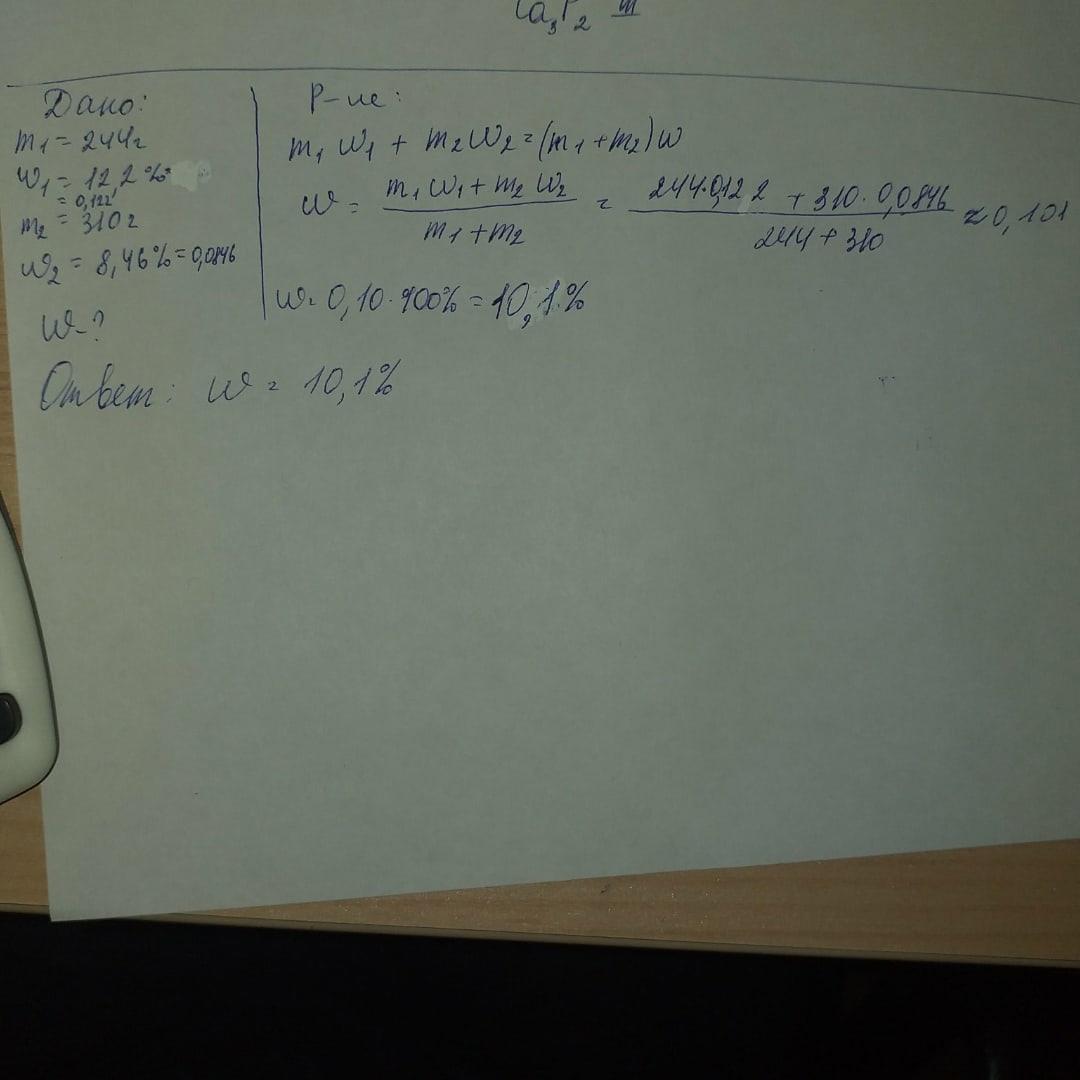 Ca₃P₂ III
Дано:
m₁ = 244г
ω₁ = 12,2%=
= 0,122
m₂ = 310г
ω₂ = 8,46% = 0,0846
ω-?
Р-ие:
m₁ω₁ + m₂ω₂ = (m₁+m₂)ω
ω = (m₁ω₁ + m₂ω₂)/(m₁+m₂) = (244·0,122 + 310·0,0846)/(244+310) ≈ 0,101
ω = 0,10·100% = 10,1%
Ответ: ω = 10,1%